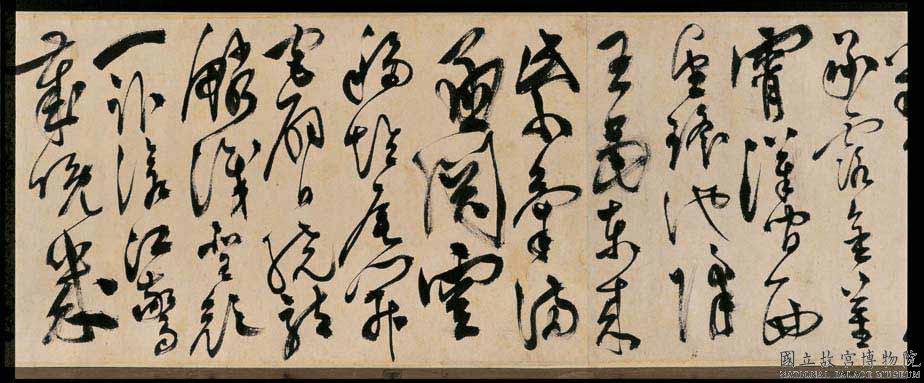 承露金莖
霄漢間西
望瑤池降
王母東來
紫氣滿
函關雲
移雉尾開
宮扇日繞龍
鱗識聖顏
一臥滄江驚
歲晚幾
國立故宮博物院
NATIONAL PALACE MUSEUM